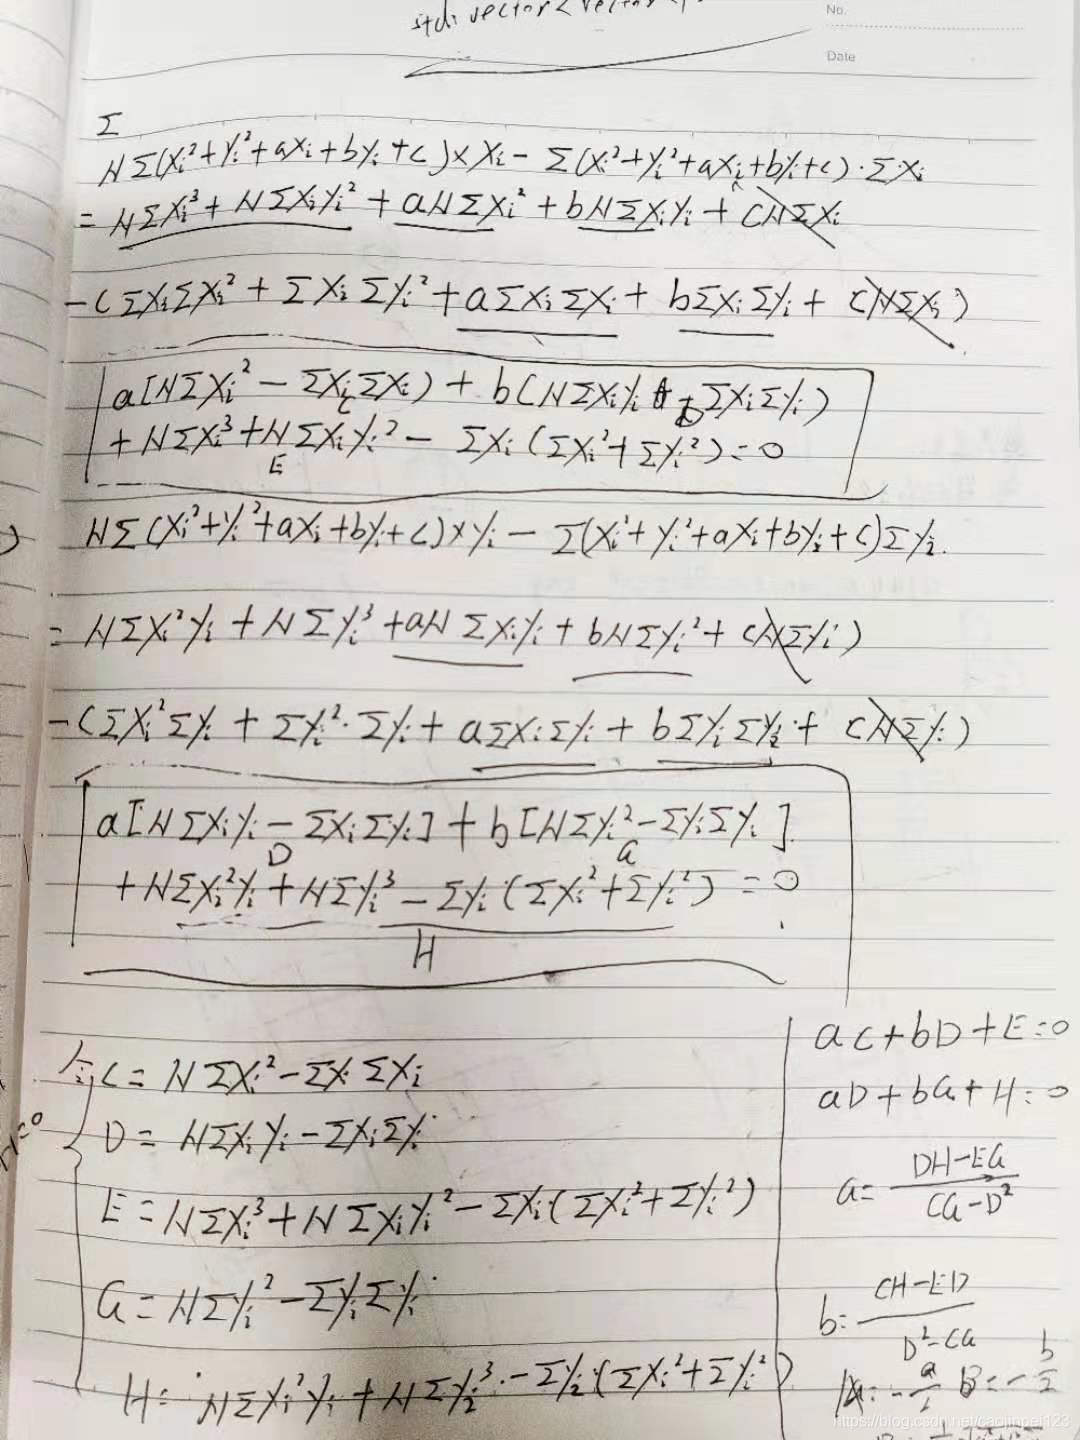 std: vector< vector
No.
Date
Σ
NΣ(Xi²+Yi²+aXi+bYi+c)×Xi - Σ(Xi²+Yi²+aXi+bYi+c)·ΣXi
= NΣXi³ + NΣXiYi² + aNΣXi² + bNΣXiYi + CNΣXi
-(ΣXiΣXi² + ΣXiΣYi² + aΣXiΣXi + bΣXiΣYi + CNΣXi)
a[NΣXi² - ΣXiΣXi) + b(NΣXiYi - ΣXiΣYi)
C D
+ NΣXi³ + NΣXiYi² - ΣXi(ΣXi²+ΣYi²)=0
E
NΣ(Xi²+Yi²+aXi+bYi+c)×Yi - Σ(Xi²+Yi²+aXi+bYi+c)ΣYi
= NΣXi²Yi + NΣYi³ + aNΣXiYi + bNΣYi² + CNΣYi)
-(ΣXi²ΣYi + ΣYi²·ΣYi + aΣXiΣYi + bΣYiΣYi + CNΣYi)
a[NΣXiYi - ΣXiΣYi] + b[NΣYi² - ΣYiΣYi]
D G
+NΣXi²Yi + NΣYi³ - ΣYi(ΣXi²+ΣYi²) = 0
H
C = NΣXi² - ΣXiΣXi
D = NΣXiYi - ΣXiΣYi
E = NΣXi³ + NΣXiYi² - ΣXi(ΣXi²+ΣYi²)
G = NΣYi² - ΣYiΣYi
H = NΣXi²Yi + NΣYi³ - ΣYi(ΣXi²+ΣYi²)
aC+bD+E=0
aD+bG+H=0
a= DH-EG
CG-D²
b= CH-ED
D²-CG
A=-a/2 B=-b/2
https://blog.csdn.net/caojinpei123